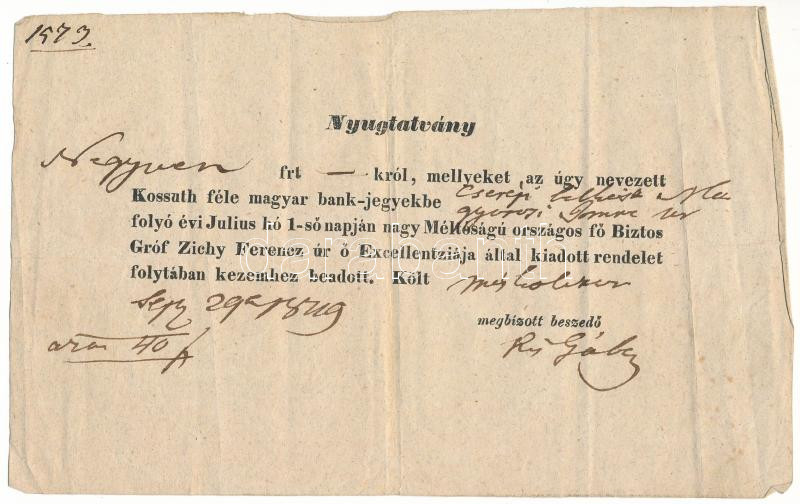 1573.
Nyugtatvány
Negyven frt — król, mellyeket az úgy nevezett
Kossuth féle magyar bank-jegyekbe Cserepi
folyó évi Julius hó 1-ső napján nagy Méltóságú országos fő Biztos
Gróf Zichy Ferencz úr ő Excellentziája által kiadott rendelet
folytában kezemhez beadott. Költ Miskolczon
Sept 29 849
megbizott beszedő
azaz 40 f